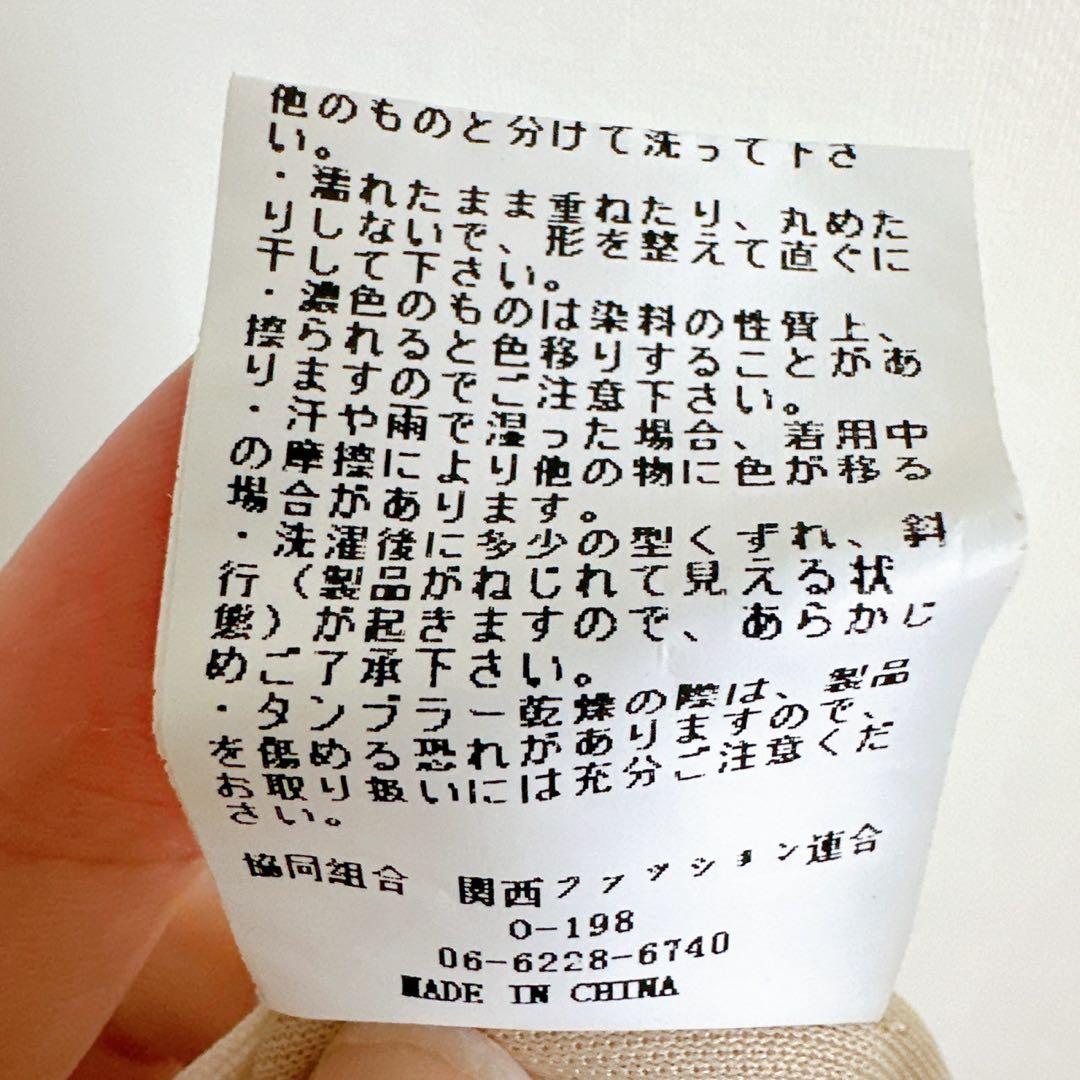 他のものと分けて洗って下さ
い。
・濡れたまま重ねたり、丸めた
りしないで、形を整えて直ぐに
干して下さい。
・濃色のものは染料の性質上、
擦られると色移りすることがあ
りますのでご注意下さい。
・汗や雨で湿った場合、着用中
の摩擦により他の物に色が移る
場合があります。
・洗濯後に多少の型くずれ、斜
行（製品がねじれて見える状
態）が起きますので、あらかじ
めご了承下さい。
・タンブラー乾燥の際は、製品
を傷める恐れがありますので、
お取り扱いには充分ご注意くだ
さい。
協同組合 関西ファッション連合
O-198
06-6228-6740
MADE IN CHINA